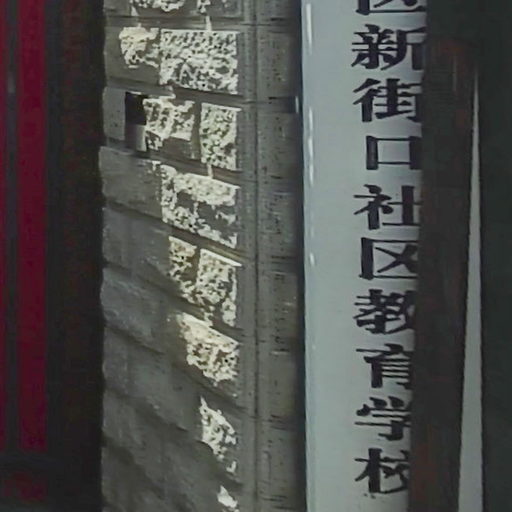 区新街口社区教育学校